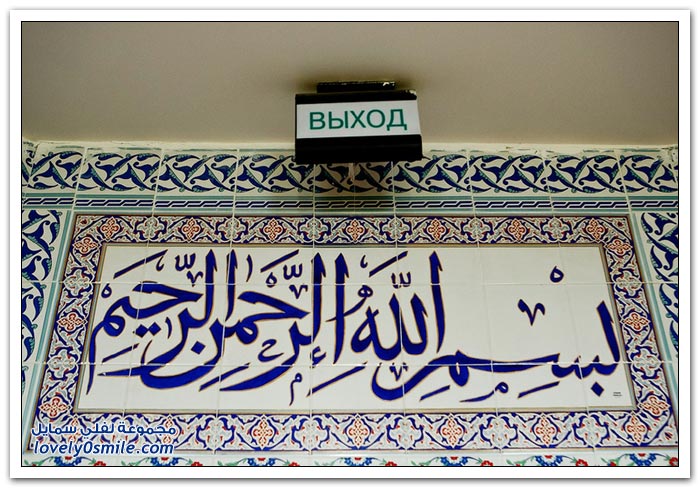 ВЫХОД
بسم الله الرحمن الرحيم
مجموعة لفلي سمايل
lovely0smile.com